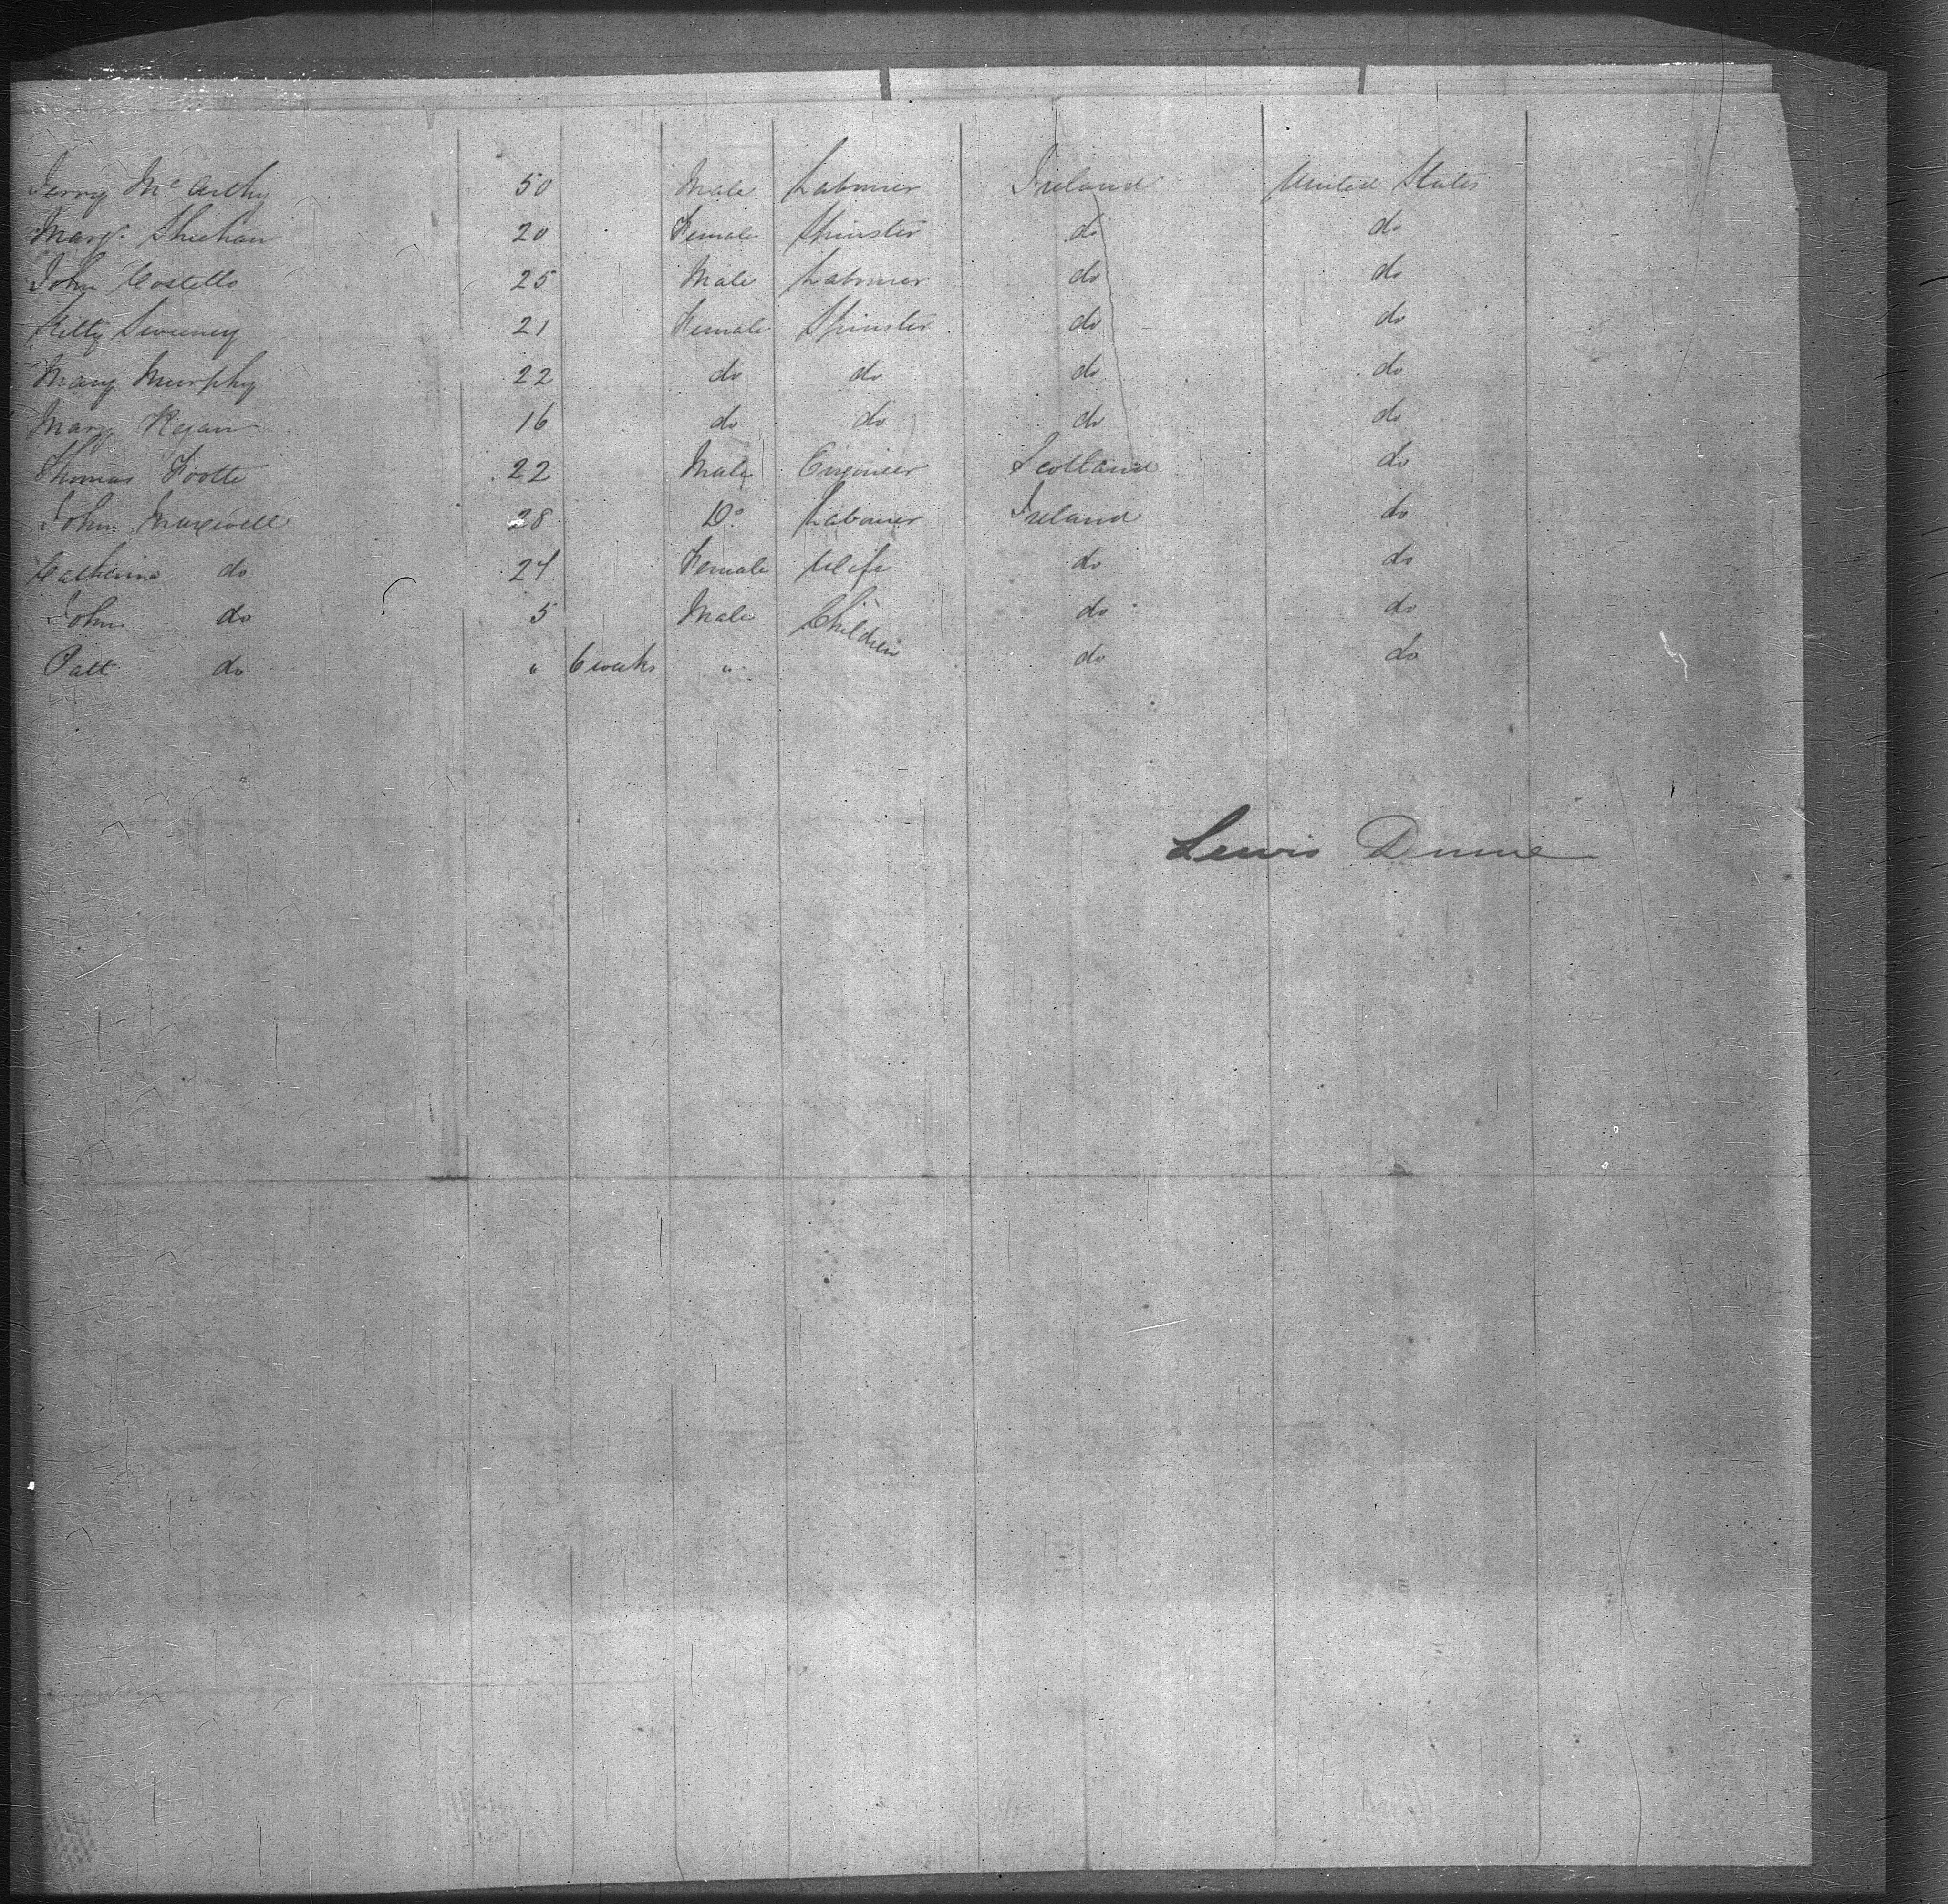 Jerry McCarthy 50 Male Labourer Ireland United States
Margt. Sheehan 20 Female Spinster do do
John Costello 25 Male Labourer do do
Kitty Sweeney 21 Female Spinster do do
Mary Murphy 22 do do do do
Mary Regan 16 do do do do
Thomas Footte 22 Male Engineer Scotland do
John Maxwell 28 Do Labourer Ireland do
Catherine do 24 Female Wife do do
John do 5 Male Children do do
Patt do " 6 weeks " do do
Lewis Dunne